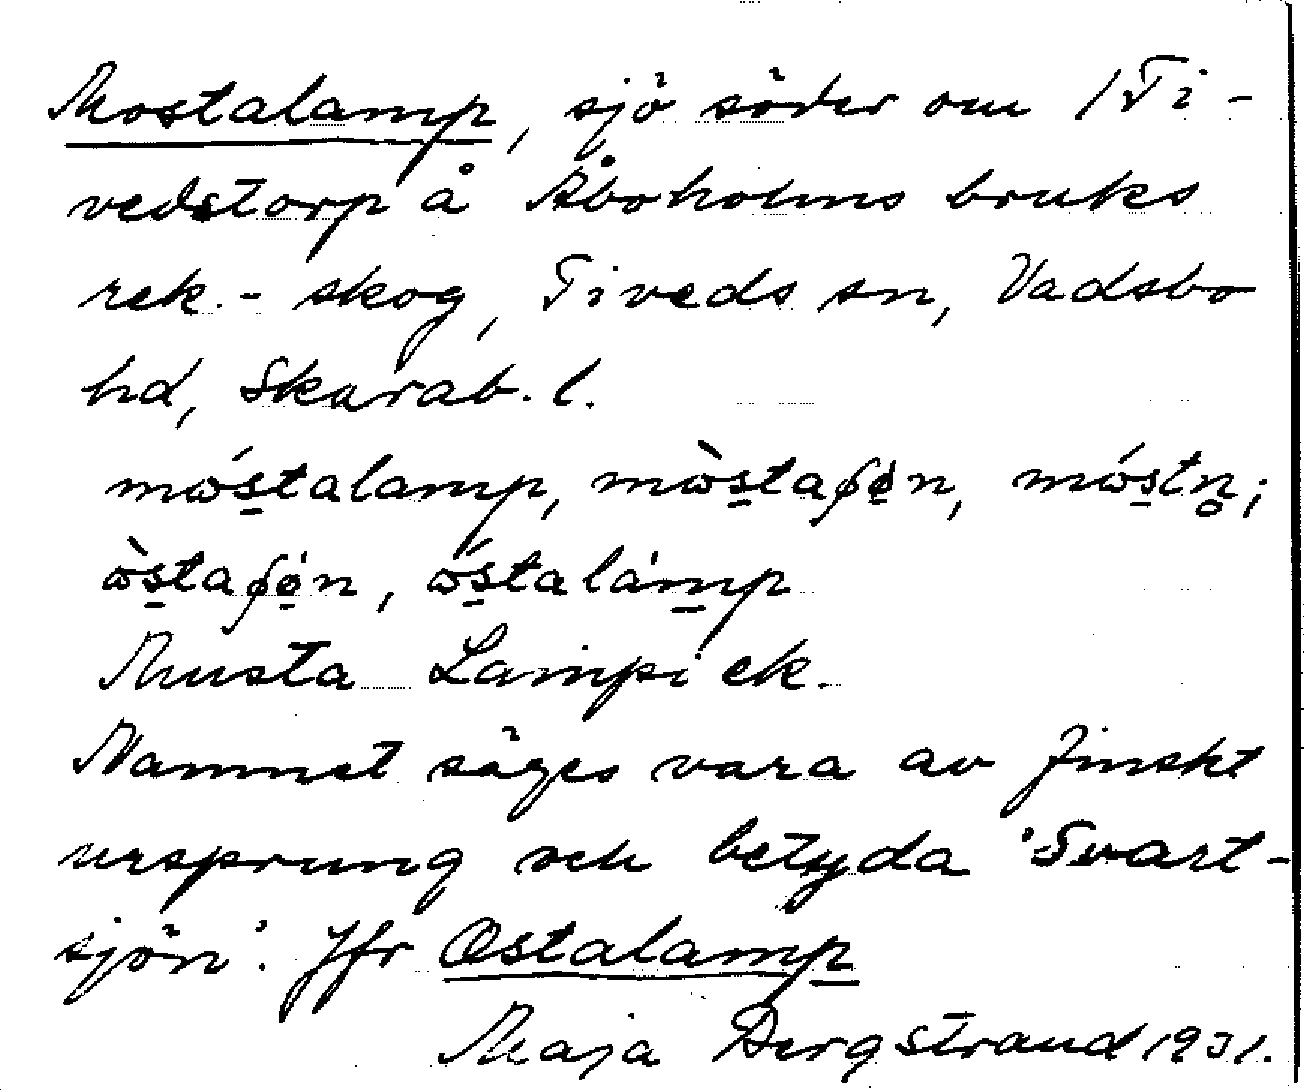 Mostalamp, sjö söder om /Ti-
vedstorp å Åboholms bruks
rek.-skog, Tiveds sn, Vadsbo
hd, Skarab. l.
Musta Lampi ek.
Namnet säges vara av finskt
ursprung och betyda 'Svart-
sjön'. Jfr Ostalamp
Maja Bergstrand 1931.